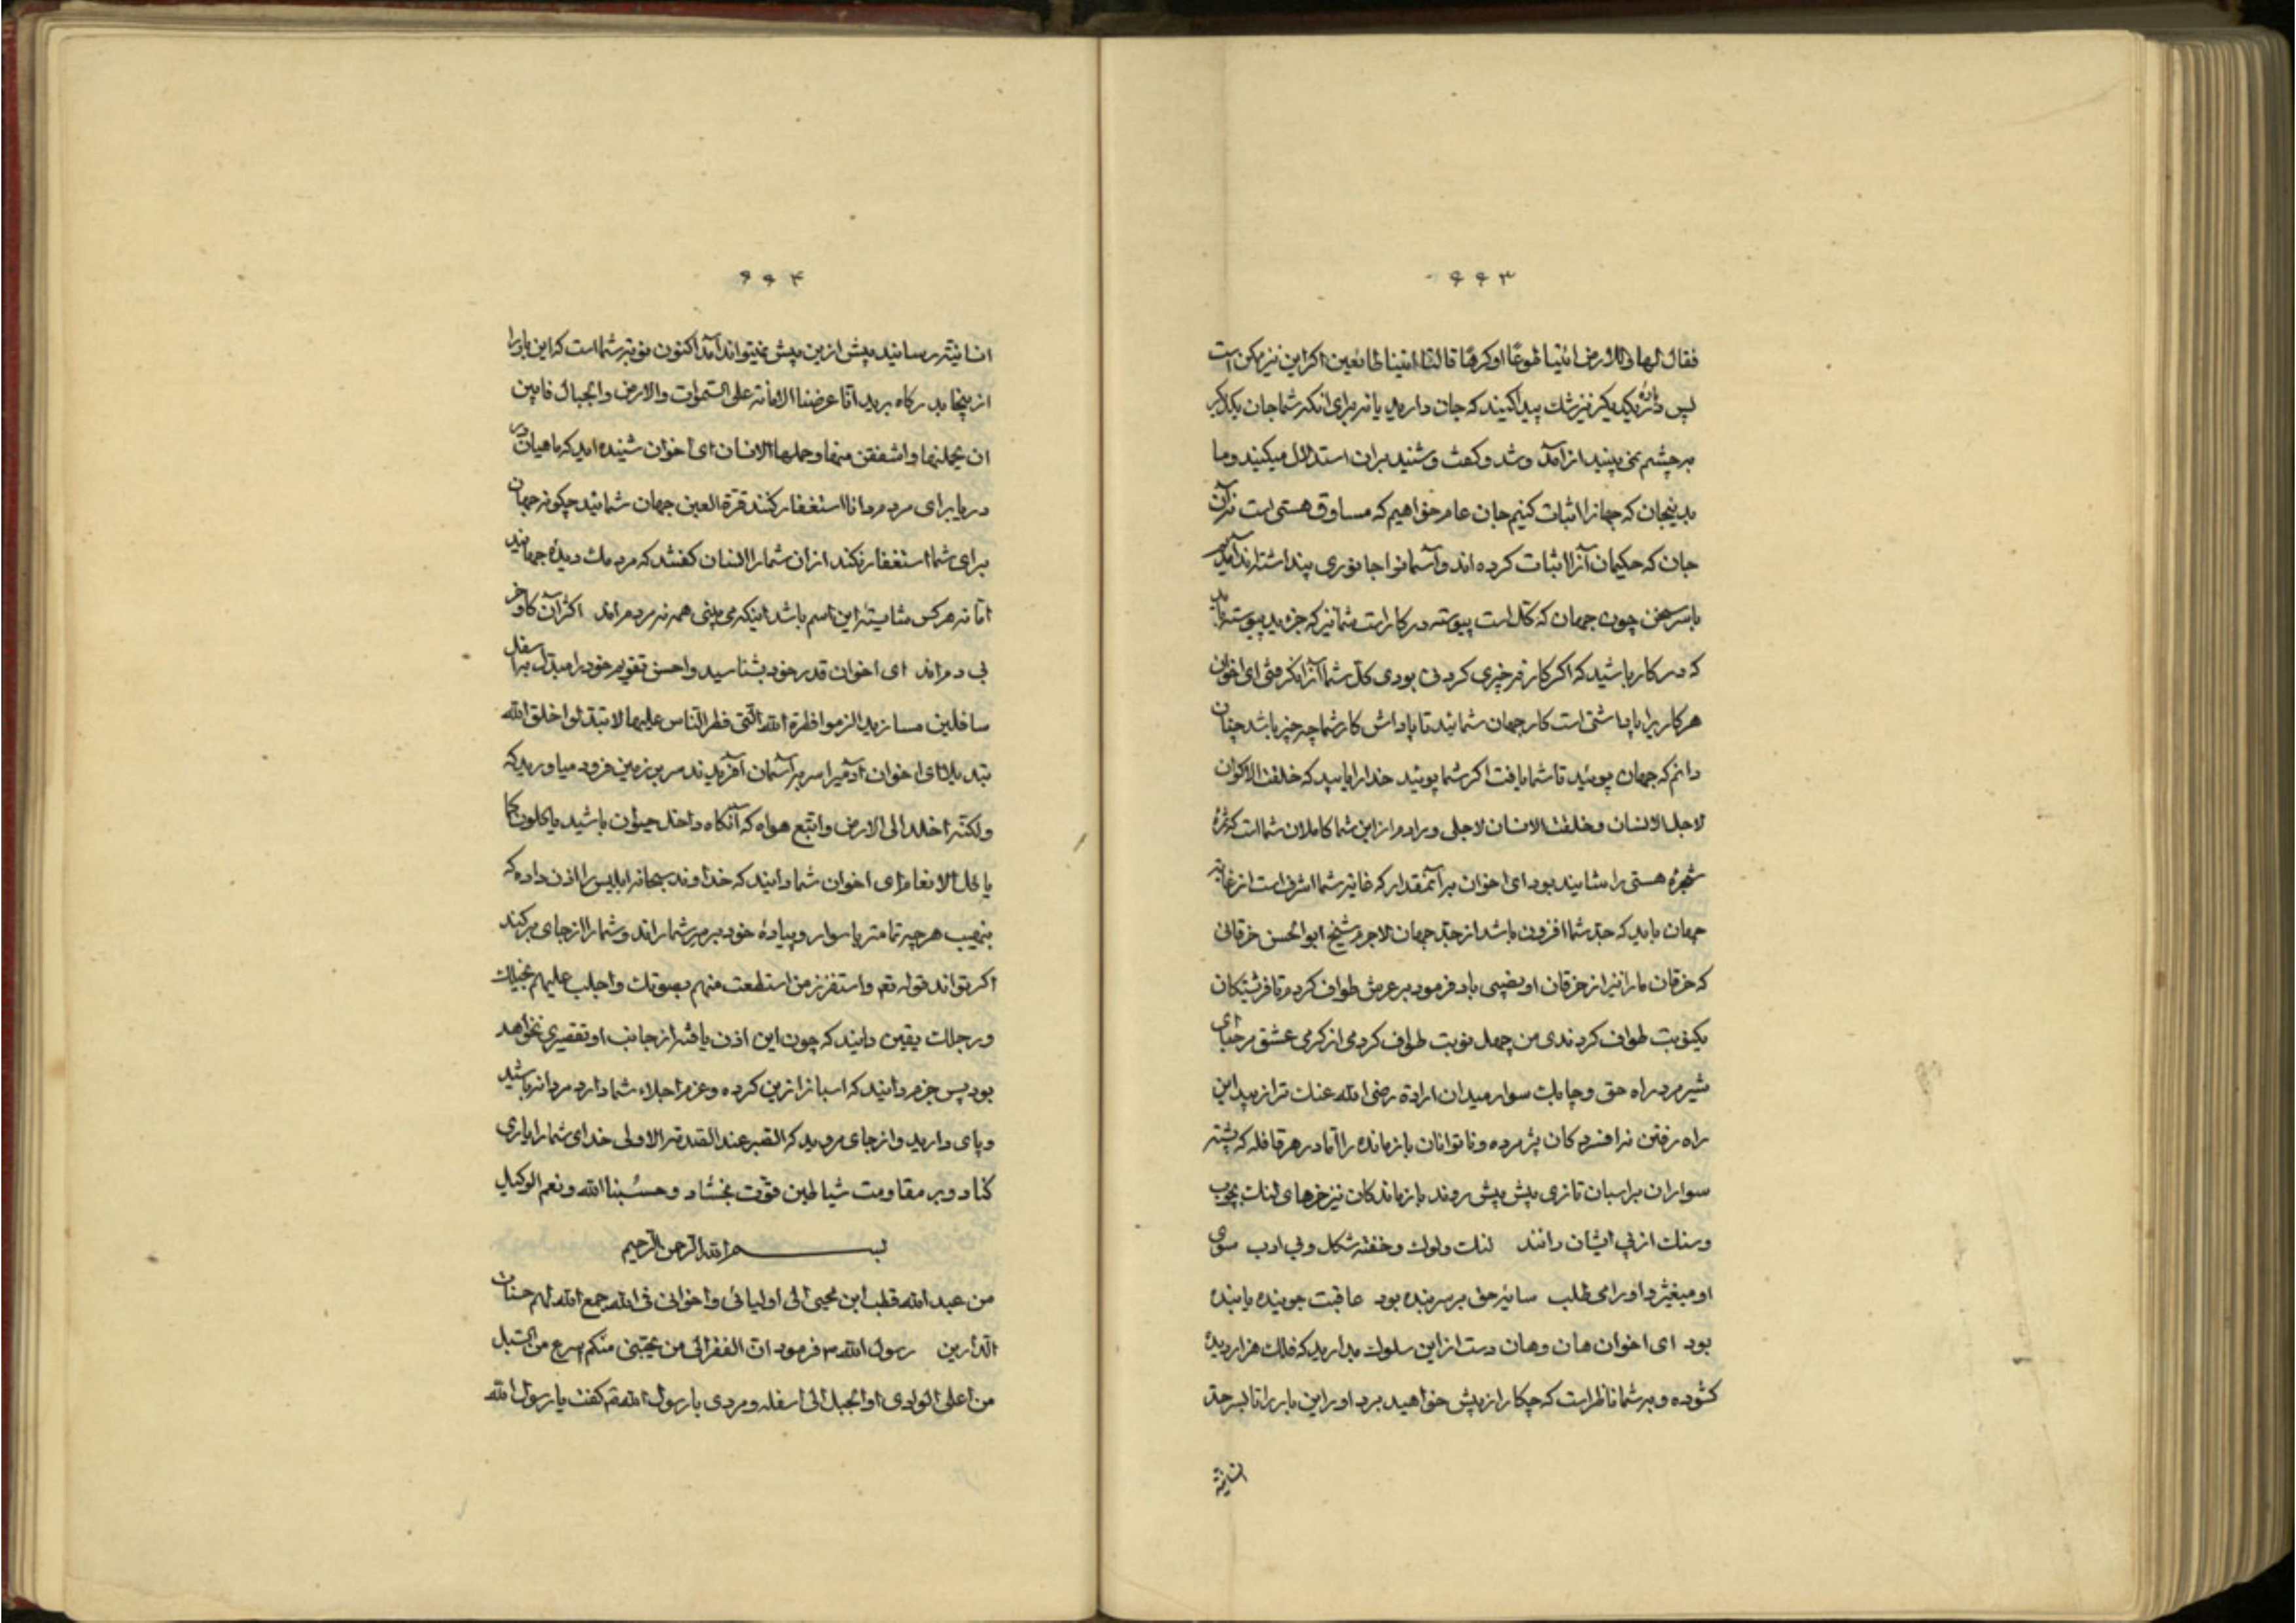 ۶۶۳
فقال لها وللارض ائتیا طوعًا او کرهًا قالتا اتینا طائعین اکر این نیز ممکن است
پس در یکدیکر نیز شک پیدا کنید که جان دارید یا نه برای انکه شما جان یکدیکر
بر چشم نمی بینید از آمد و شد و کفت و شنید بران استدلال میکنید و ما
بدینجان که جهانرا اثبات کنیم جان عام خواهیم که مساوق هستی است نه آن
جان که حکیمان آنرا اثبات کرده اند و آسمانرا جانوری پنداشته اند آمدیم
باسر سخن چون جهان که کل است پیوسته در کار است شما نیز که جزءید پیوسته باید
که در کار باشید که اکر کار فرخیری کردنی بودی کل شما آنرا نکرفتی ای اخوان
هر کار یرا پاداشتی است کار جهان شمائید تا پاداش کار شما چه چیز باشد چنان
دانم که جهان پوئید تا شما یافت اکر شما پوئید خدا را یابید که خلقت الاکوان
لاجل الانسان و خلقت الانسان لاجلی و مرادم از این شما کاملان شما است که ثمرهٔ
شجرهٔ هستی را شایند بود ای اخوان بر آنمقدار که غایة شما اشرف است از غایة
جهان باید که جد شما افزون باشد از جد جهان لاجرم شیخ ابو الحسن خرقانی
که خرقان ما را نیز از خرقان او نصیبی باد فرمود بر عرش طواف کردم تا فرشتکان
یکنوبت طواف کردندی من چهل نوبت طواف کردمی از کرمی عشق مرحبا ای
شیر مرد راه حق و چابک سوار میدان ارادة رضی الله عنک ترا زیبد این
راه رفتن نه افسردکان پژمرده و ناتوانان باز مانده را اما در هر قافله که پیشتر
سواران بر اسبان تازی پیش پیش روند باز ماندکان نیز خرهای لنک بچوب
و سنک از پی ایشان رانند لنک و لوک و خفته شکل و بی ادب سوی
او میغیژ و او را می طلب سایهٔ حق بر سر بنده بود عاقبت جوینده یابنده
بود ای اخوان هان و هان دست از این سلوک مدارید که فلک هزار دیدهٔ
کشوده و بر شما ناظر است که چکار از پیش خواهید برد او این بار را تا بسر حد
انسانیة
۶۶۴
انسانیة رسانید پیش ازین پیش نمیتواند آمد اکنون نوبة شما است که این بار را
از ینجا بدرکاه برید انا عرضنا الامانة علی السموات والارض والجبال فابین
ان یحملنها واشفقن منها وحملها الانسان ای اخوان شنیده اید که ماهیان در
دریا برای مردم دانا استغفار کنند قرة العین جهان شمائید چکونه جهان
برای شما استغفار نکند از ان شما را انسان کفتند که مردمک دیدهٔ جهانید
اما نه هر کس شایستهٔ این اسم باشد اینکه می بینی همه نه مردم اند اکثر آن کاو خر
بی دم اند ای اخوان قدر خود بشناسید و احسن تقویم خود را مبدل به اسفل
سافلین مسازید الزموا فطرة الله التی فطر الناس علیها لا تبدلوا خلق الله
تبدیلا ای اخوان آدمیرا سر بر آسمان آفریدند سر بر زمین فرود میاورید که
ولکنه اخلد الی الارض واتبع هواه که آنکاه داخل حیوان باشید یاکلون کما
یاکل الانعام ای اخوان شما دانید که خداوند سبحانه ابلیس را اذن داده که
بنهیب هر چه تمامتر با سوار و پیادهٔ خود بر سر شما راند و شما را از جای برکند
اکر تواند قوله تع واستفزز من استطعت منهم بصوتک واجلب علیهم بخیلک
ورجلک یقین دانید که چون این اذن یافته از جانب او تقصیری نخواهد
بود پس جزم دانید که اسبانرا زین کرده و عزم اجلاء شما دارد مردانه باشید
و پای دارید و از جای مروید که الصبر عند الصدمة الاولی خدای شما را یاری
کناد و بر مقاومت شیاطین قوت بخشاد وحسبنا الله ونعم الوکیل
بسم الله الرحمن الرحیم
من عبد الله قطب ابن محیی الی اولیائی واخوانی فی الله جمع الله لهم حسنات
الدارین رسول الله فرمود ان الفقر الی من یحبنی منکم اسرع من السیل
من اعلی الوادی او الجبل الی اسفله و مردی با رسول الله کفت یا رسول الله